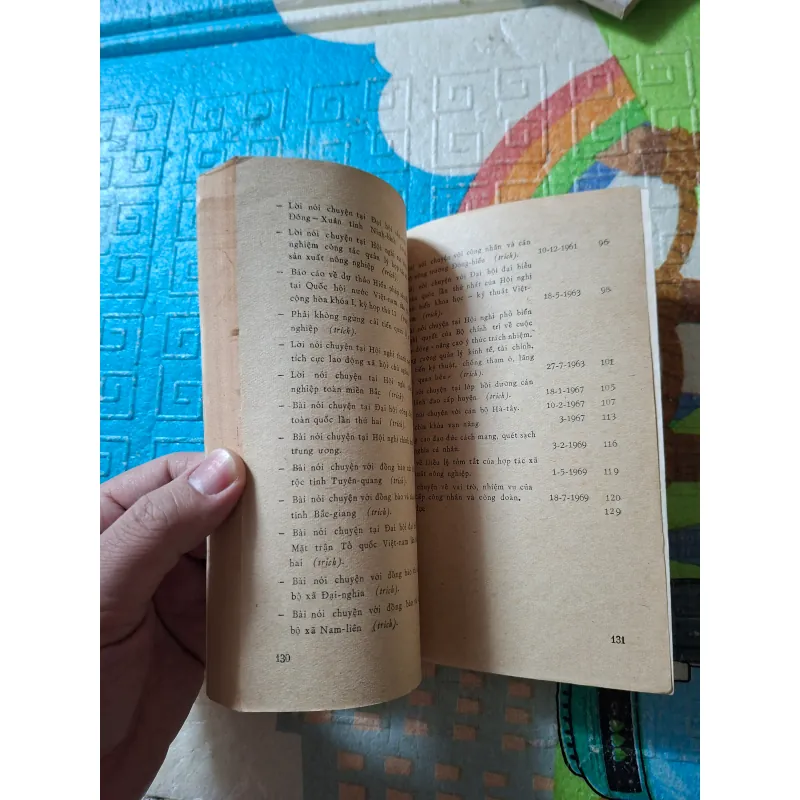 — Lời nói chuyện tại Đại hội
Đông—Xuân tỉnh Ninh-bình
— Lời nói chuyện tại Hội nghị
nghiệm công tác quản lý hợp
sản xuất nông nghiệp (trích).
— Báo cáo về dự thảo Hiến pháp
tại Quốc hội nước Việt-nam
cộng hòa khóa I, kỳ họp thứ 11
— Phải không ngừng cải tiến
nghiệp (trích).
— Lời nói chuyện tại Hội nghị
tích cực lao động xã hội chủ
— Lời nói chuyện tại Hội nghị
nghiệp toàn miền Bắc (trích).
— Bài nói chuyện tại Đại hội
toàn quốc lần thứ hai (trích).
— Bài nói chuyện tại Hội nghị
trung ương.
— Bài nói chuyện với đồng bào
tộc tỉnh Tuyên-quang
— Bài nói chuyện với đồng bào
tỉnh Bắc-giang (trích).
— Bài nói chuyện tại Đại hội
Mặt trận Tổ quốc Việt-nam
hai (trích).
— Bài nói chuyện với đồng bào
bộ xã Đại-nghĩa (trích).
— Bài nói chuyện với đồng bào
bộ xã Nam-liên (trích).
130
nói chuyện với công nhân và cán
nông trường Đông-hiếu (trích) 10-12-1961 96
nói chuyện với Đại hội đại biểu
quốc lần thứ nhất của Hội nghị
biến khoa học — kỹ thuật Việt-
(trích). 18-5-1963 98
nói chuyện tại Hội nghị phổ biến
quyết của Bộ chính trị về cuộc
động «nâng cao ý thức trách nhiệm,
cường quản lý kinh tế, tài chính,
tiến kỹ thuật, chống tham ô, lãng
quan liêu» (trích). 27-7-1963 101
nói chuyện tại lớp bồi dưỡng cán
lãnh đạo cấp huyện. (trích) 18-1-1967 105
nói chuyện với cán bộ Hà-tây. 10-2-1967 107
chìa khóa vạn năng. 3-1967 113
cao đạo đức cách mạng, quét sạch
nghĩa cá nhân. 3-2-1969 116
Điều lệ tóm tắt của hợp tác xã
xuất nông nghiệp. 1-5-1969 119
chuyện về vai trò, nhiệm vụ của
cấp công nhân và công đoàn. 18-7-1969 120
129
131